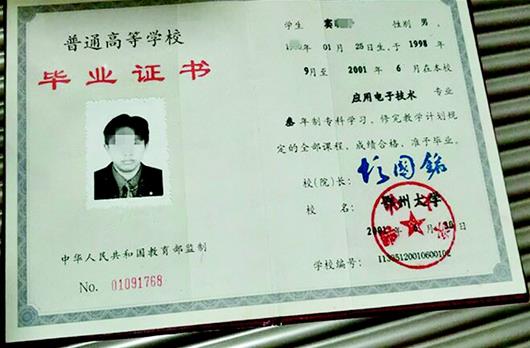 普通高等学校
毕业证书
中华人民共和国教育部监制
No. 01091768
学生 性别 男，
年01月25日生，于1998
年9月至2001年6月在本校
应用电子技术 专业
叁年制专科学习，修完教学计划规
定的全部课程，成绩合格，准予毕业。
校(院)长：
校 名： 鄂州大学
2001年 月30日
学校编号：